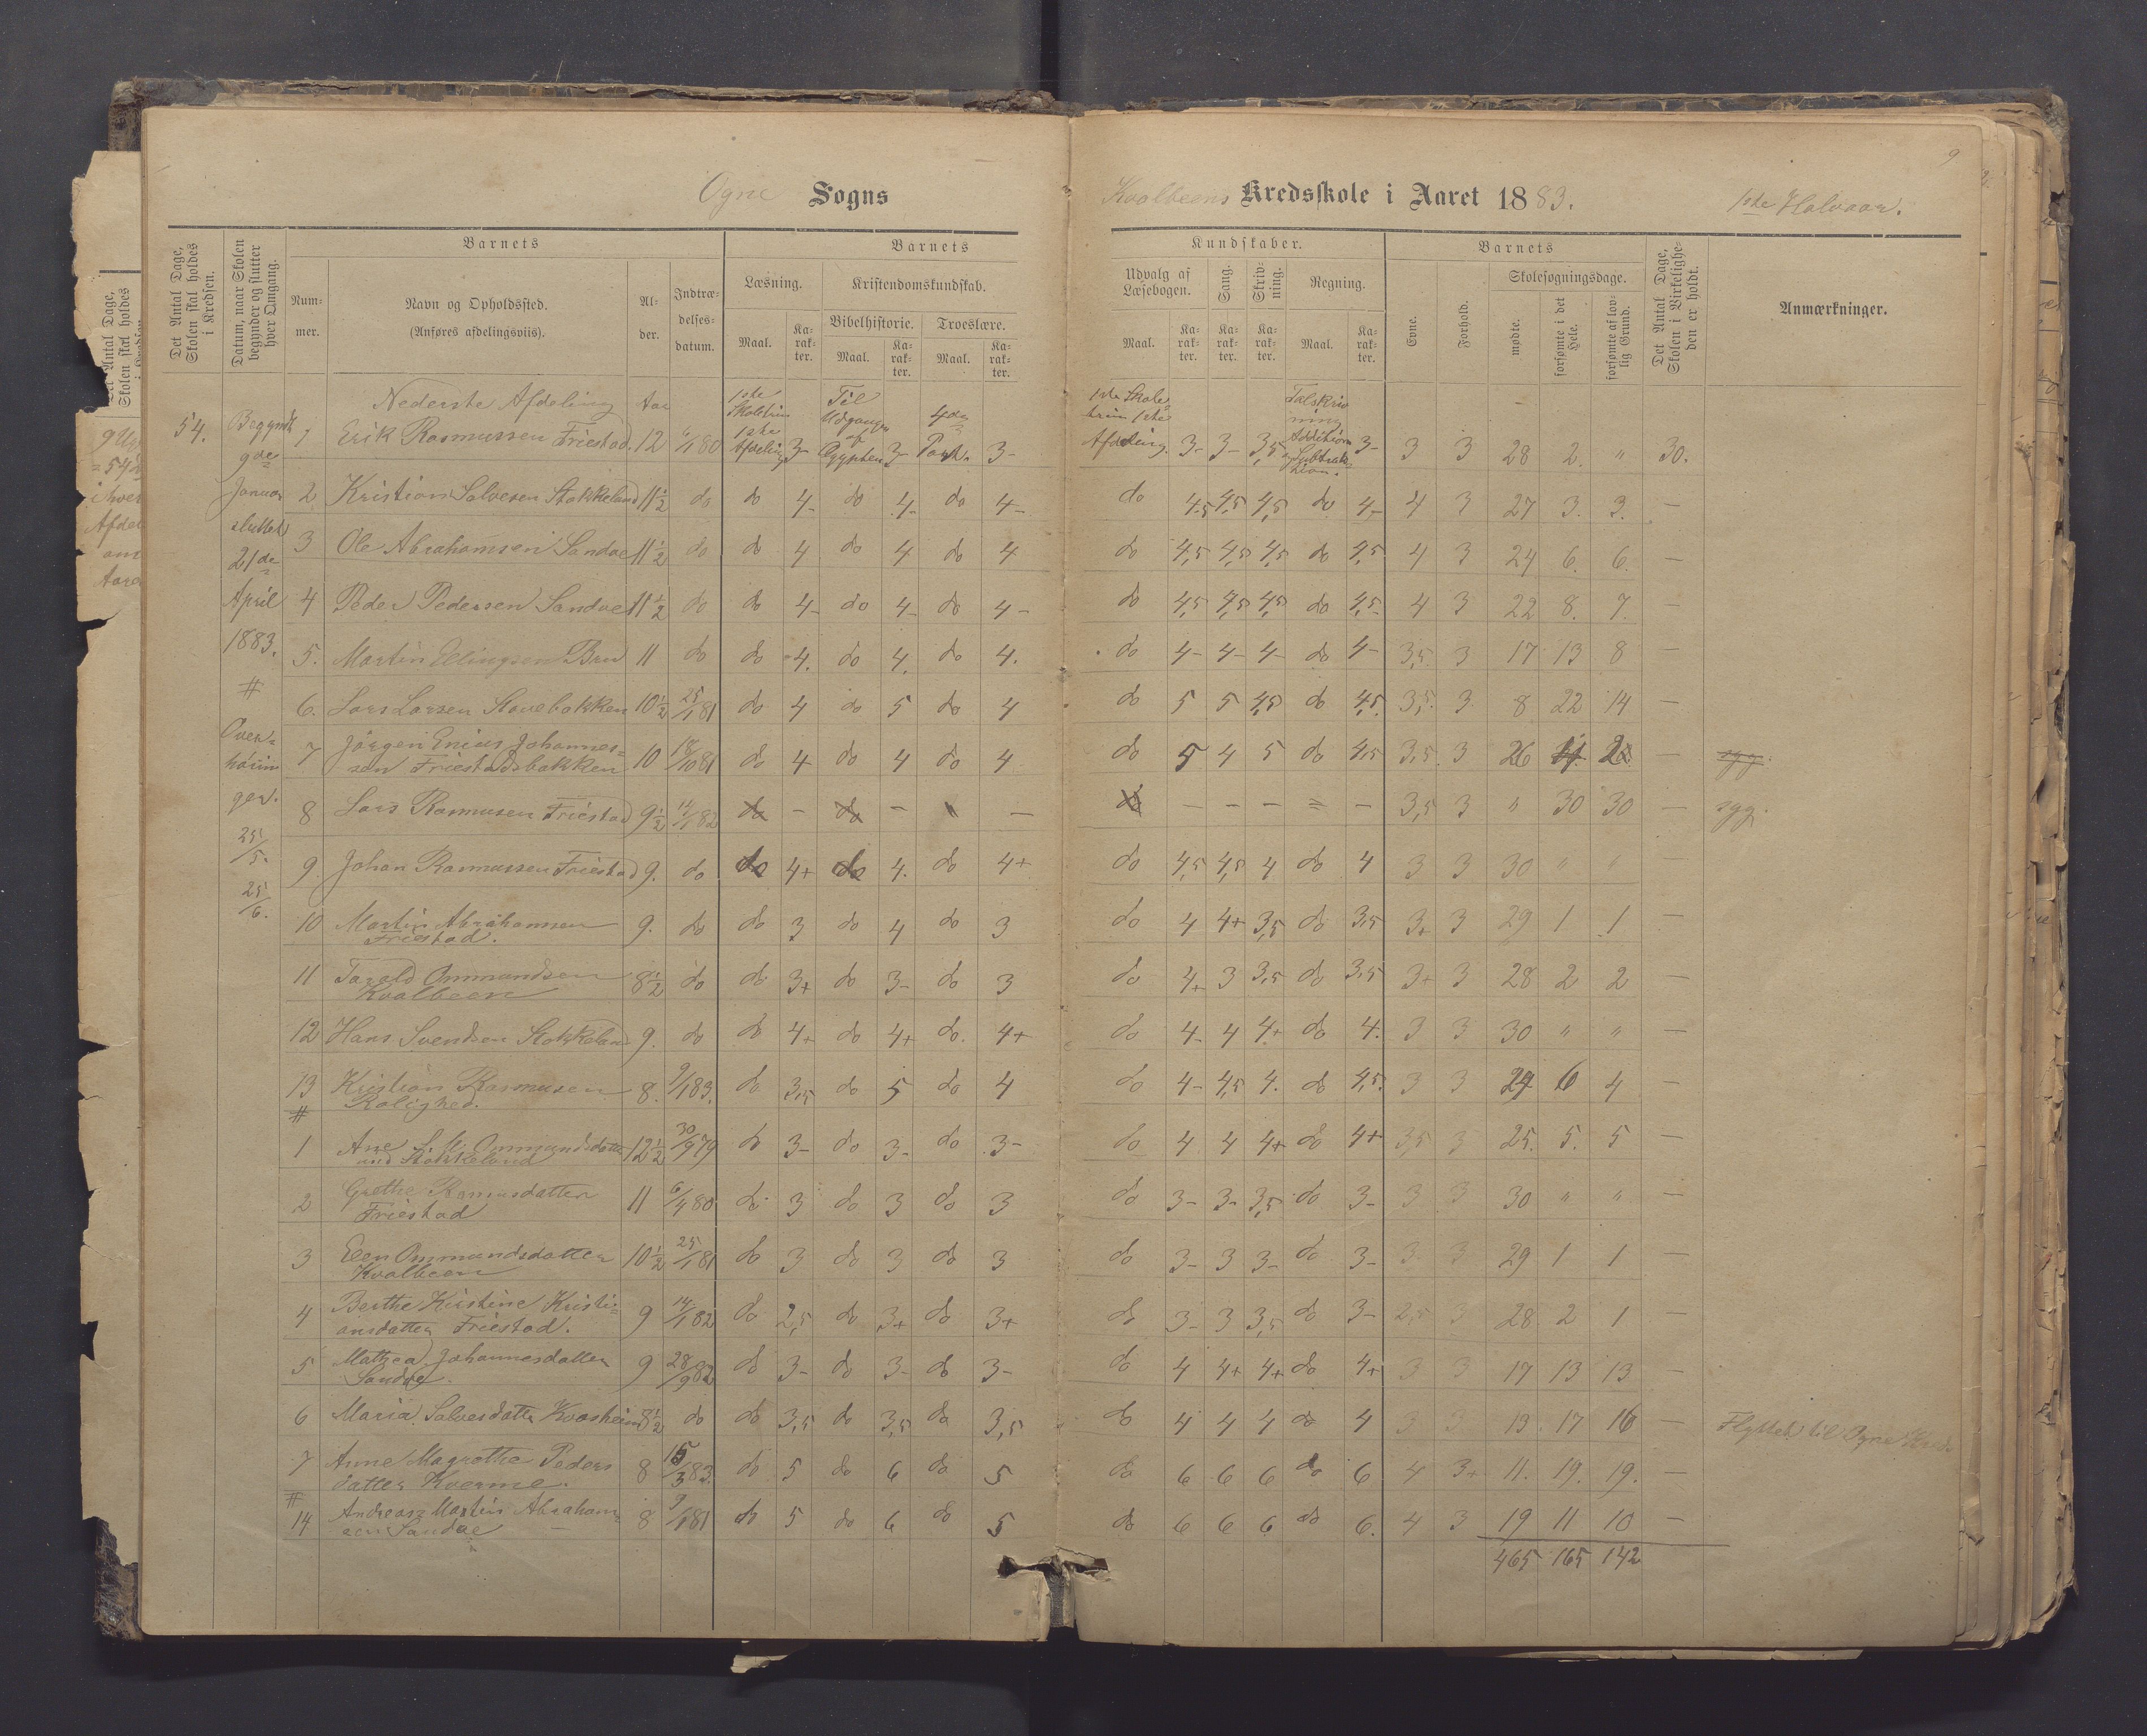 9
Ogne Sogns Kvalbeens Kredsskole i Aaret 1883. 1ste Halvaar.
Det Antal Dage, Skolen skal holdes i Kredsen.
Datum, naar Skolen begynder og slutter hver Omgang.
Barnets
Nummer.
Navn og Opholdssted.
(Anføres afdelingsviis).
Alder.
Indtrædelsesdatum.
Barnets Kundskaber.
Læsning.
Kristendomskundskab.
Bibelhistorie.
Troeslære.
Maal. Karakter. Maal. Karakter. Maal. Karakter.
Udvalg af Læsebogen.
Sang.
Skrivning.
Regning.
Maal. Karakter. Karakter. Karakter. Maal. Karakter.
Barnets
Evne.
Forhold.
Skolesøgningsdage.
mødte.
forsømte i det Hele.
forsømte af lovlig Grund.
Det Antal Dage, Skolen i Virkeligheden er holdt.
Anmærkninger.
54.
Begyndt
9de
Januar
sluttet
21de
April
1883.
#
Overhøringer.
25/5.
25/6.
Nederste Afdeling Aar
1 Erik Rasmussen Friestad 12 6/1 80 1ste Skoletrin 1ste Afdeling 3- Til Udgangen af Ægypten 3- 4de Part. 3- 1ste Skoletrin 1ste Afdeling. 3- 3- 3,5 Talskrivning Addition og Subtraktion. 3- 3 3 28 2. " 30.
2 Kristian Salvesen Stokkeland 11½ do do 4- do 4- do 4- do 4,5 4,5 4,5 do 4,- 4 3 27 3. 3. —
3 Ole Abrahamsen Sandve 11½ do do 4 do 4 do 4 do 4,5 4,5 4,5 do 4,5 4 3 24 6. 6. —
4 Peder Pedersen Sandve 11½ do do 4- do 4- do 4- do 4,5 4,5 4,5 do 4,5 4 3 22 8. 7. —
5. Martin Ellingsen Bru 11 do do 4. do 4. do 4. do 4- 4- 4- do 4- 3,5 3 17 13 8 —
6. Lars Larsen Stavebakken 10½ 25/1 81 do 4 do 5 do 4 do 5 5 4,5 do 4,5. 3,5. 3. 8 22 14 —
7 Jørgen Enius Johannessen Friestadsbakken 10 18/10 81 do 4 do 4 do 4 do 5 4 5 do 4,5 3,5. 3 26 4. 2. — syg.
8 Lars Rasmusen Friestad 9½ 14/1 82 do — do — " — do — — — = — 3,5 3 " 30 30 — syg.
9. Johan Rasmussen Friestad 9. do do 4+ do 4. do 4+ do 4,5 4,5 4 do 4 3 3 30 " " —
10 Martin Abrahamsen Friestad. 9. do do 3 do 4 do 3 do 4 4+ 3,5 do 3,5 3+ 3 29 1 1 —
11 Tarald Ommundsen Kvalbeen 8½ do do 3+ do 3- do 3 do 4+ 3 3,5 do 3,5 3+ 3 28 2 2 —
12 Hans Svendsen Stokkeland 9. do do 4+ do 4+ do. 4+ do 4- 4 4+ do 4. 3 3 30 " " —
13 Kristian Rasmusen Rolighed. 8. 9/1 83. do 3,5 do 5 do 4 do 4- 4,5 4. do 4,5. 3 3 24 6 4 —
#
1 Ane Ommundsdatter Stokkeland 12½ 30/9 79 do 3- do 3- do 3- do 4 4 4+ do 4+ 3,5 3 25. 5. 5 —
2 Grethe Rasmusdatter Friestad 11 6/1 80 do 3 do 3 do 3 do 3- 3- 3,5 do 3- 3 3 30 " " —
3 Elen Ommundsdatter Kvalbeen 10½ 25/1 81 do 3 do 3 do 3 do 3- 3 3- do 3- 3 3 29 1 1 —
4 Berthe Kirstine Kristiansdatter Friestad. 9 14/1 82 do 2,5 do 3+ do 3+ do 3- 3 3,5 do 3- 2,5 3 28 2 1 —
5 Mathea Johannesdatter Sandve. 9 28/9 82 do 3- do 3- do 3- do 4 4+ 4+ do 4+ 3 3 17 13 13 —
6 Maria Salvesdatter Kvasheim 8½ do do 3,5 do 3,5 do 3,5 do 4 4 4 do 4 3 3 13 17 16 — Flyttet til Ogne Kreds
7 Anne Magrethe Pedersdatter Kverme. 8 15/3 83. do 5 do 6 do 5 do 6 6 6 do 6 4 3+ 11. 19. 19. —
#
14 Andreas Martin Abrahamsen Sandve — 8 9/1 81 do 5 do 6 do 5 do 6 6 6 do 6. 4 3 19 11 10 —
465 165 142